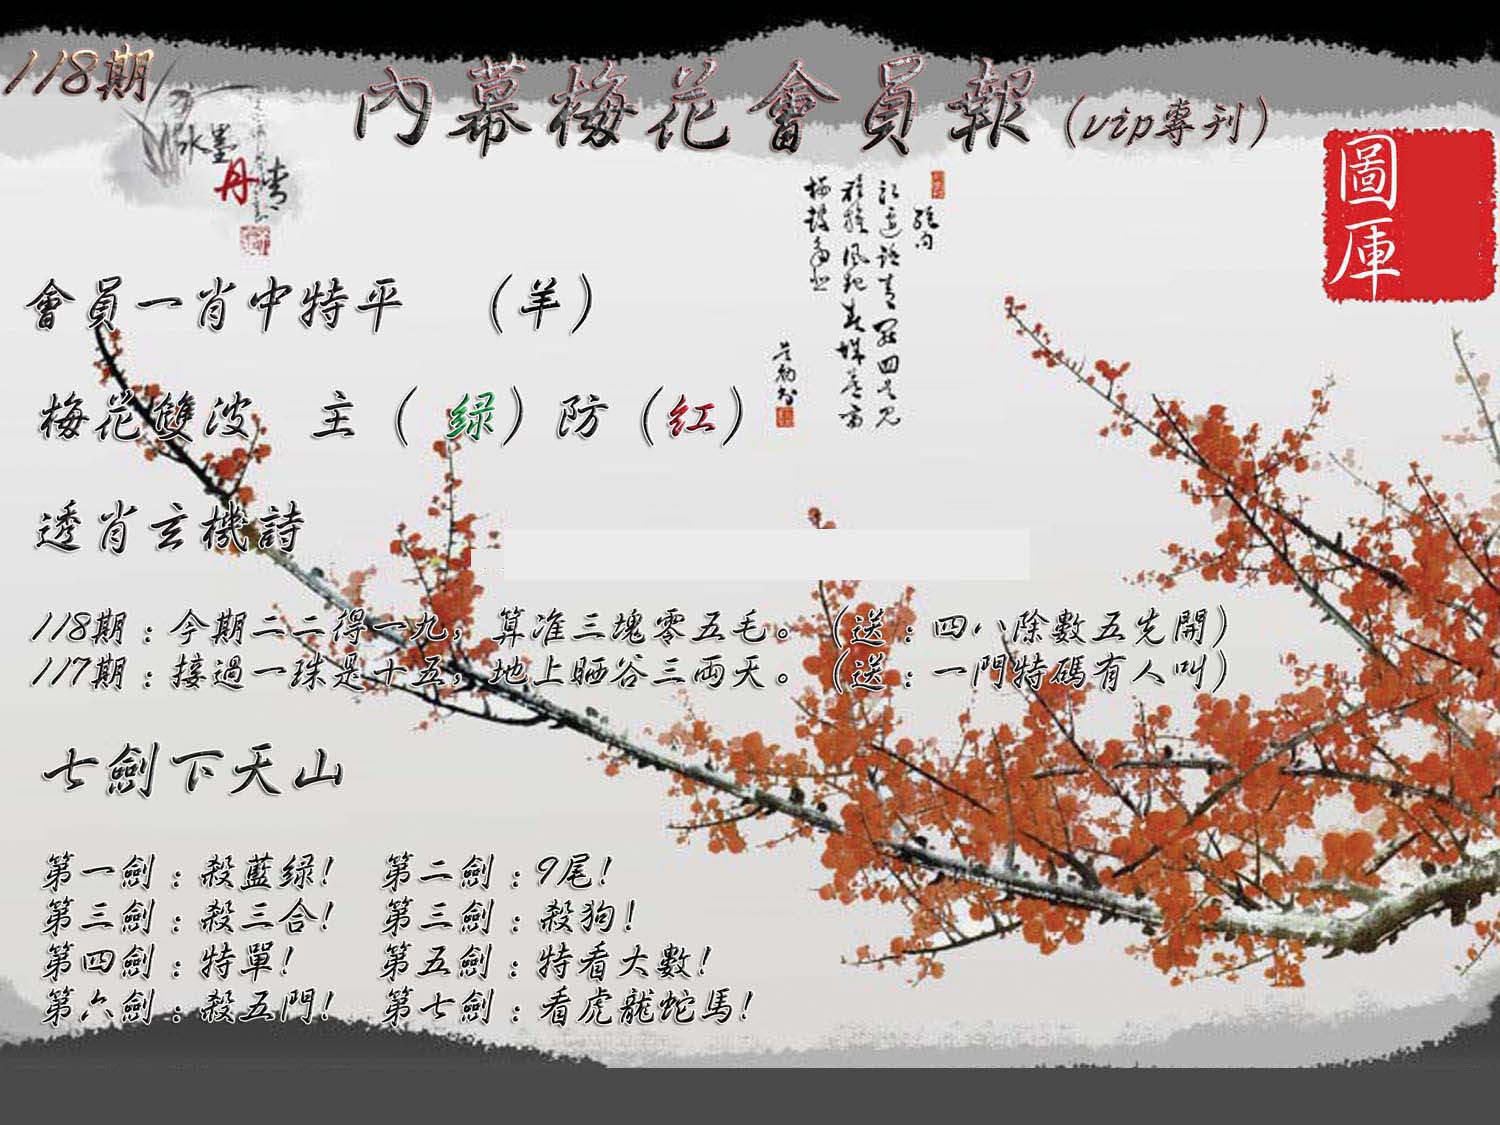 118期
內幕梅花會員報(vip專刊)
水墨
丹情
圖庫
會員一肖中特平 (羊)
梅花雙波 主(绿)防(红)
透肖玄機詩
118期:今期二二得一九,算准三塊零五毛。(送:四八除數五先開)
117期:接過一珠是十五,地上晒谷三兩天。(送:一門特碼有人叫)
七劍下天山
第一劍:殺藍绿! 第二劍:9尾!
第三劍:殺三合! 第三劍:殺狗!
第四劍:特單! 第五劍:特看大數!
第六劍:殺五門! 第七劍:看虎龍蛇馬!